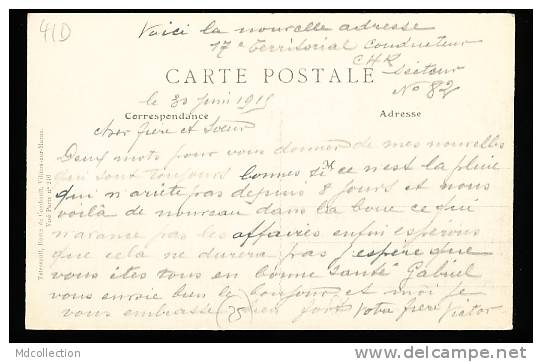 41D
Voici la nouvelle adresse
17e territorial conducteur
CHR
CARTE POSTALE
secteur
No 82
le 30 juin 1915
Correspondance
Adresse
cher frere et soeur
Deux mots pour vous donner de mes nouvelles
qui sont toujours bonnes si ce n'est la pluie
qui n'arrete pas depuis 8 jours et nous
voilà de nouveau dans la boue ce qui
n'avance pas les affaires enfin esperons
que cela ne durera pas j'espère que
vous êtes tous en bonne santé Gabriel
vous envoie bien le bonjour et moi je
vous embrasse bien fort votre frere Victor
75
Mdcollection
delcampe.net